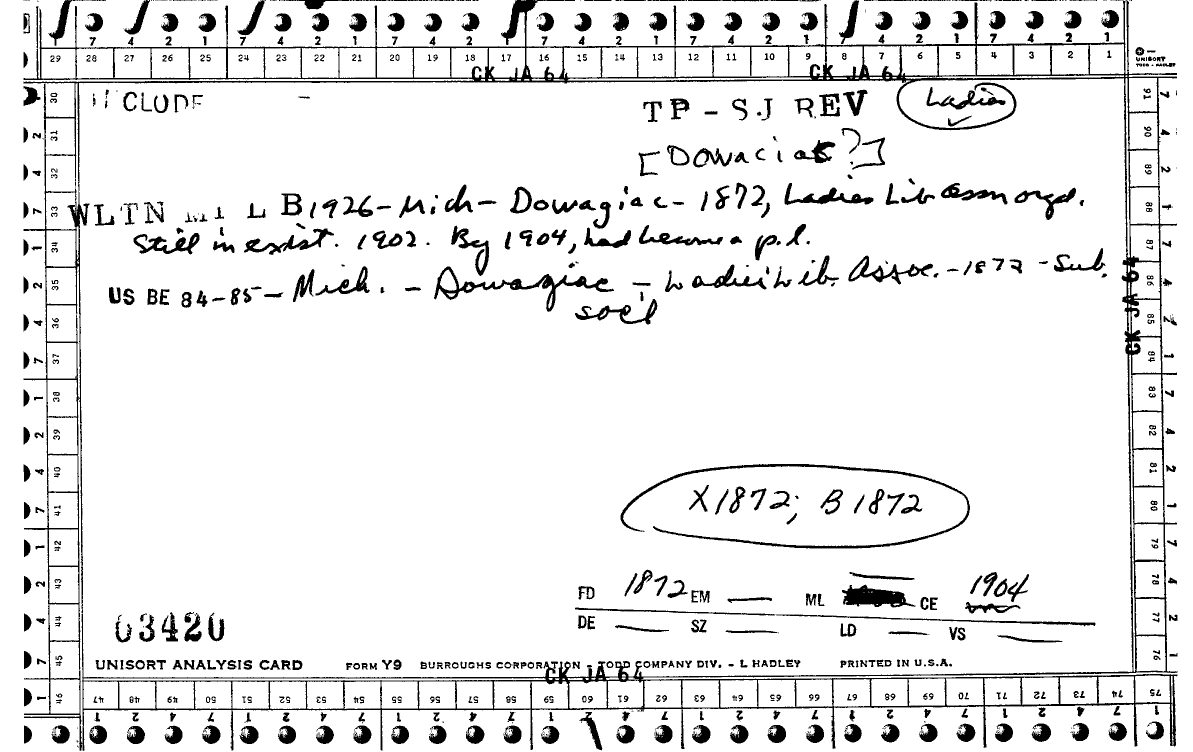 7 4 2 1 7 4 2 1 7 4 2 1 7 4 2 1 7 4 2 1 7 4 2 1 7 4 2 1
29 28 27 26 25 24 23 22 21 20 19 18 17 16 15 14 13 12 11 10 9 8 7 6 5 4 3 2 1
UNISORT
CK JA 64 CK JA 64
CLUDE TP - SJ REV Ladies
[Dowaciac?]
WLTN MI L B 1926 - Mich - Dowagiac - 1872, Ladies Lib Assn orgd.
Still in exist. 1902. By 1904, had become a p.l.
US BE 84-85 - Mich. - Dowagiac - Ladies' Lib. Assoc. - 1872 - Sub.
socl
CK JA 64
X1872; B 1872
FD 1872 EM — ML CE 1904
DE — SZ — LD — VS —
03420
UNISORT ANALYSIS CARD FORM Y9 BURROUGHS CORPORATION - TODD COMPANY DIV. - L HADLEY PRINTED IN U.S.A.
CK JA 64
47 48 49 50 51 52 53 54 55 56 57 58 59 60 61 62 63 64 65 66 67 68 69 70 71 72 73 74 75